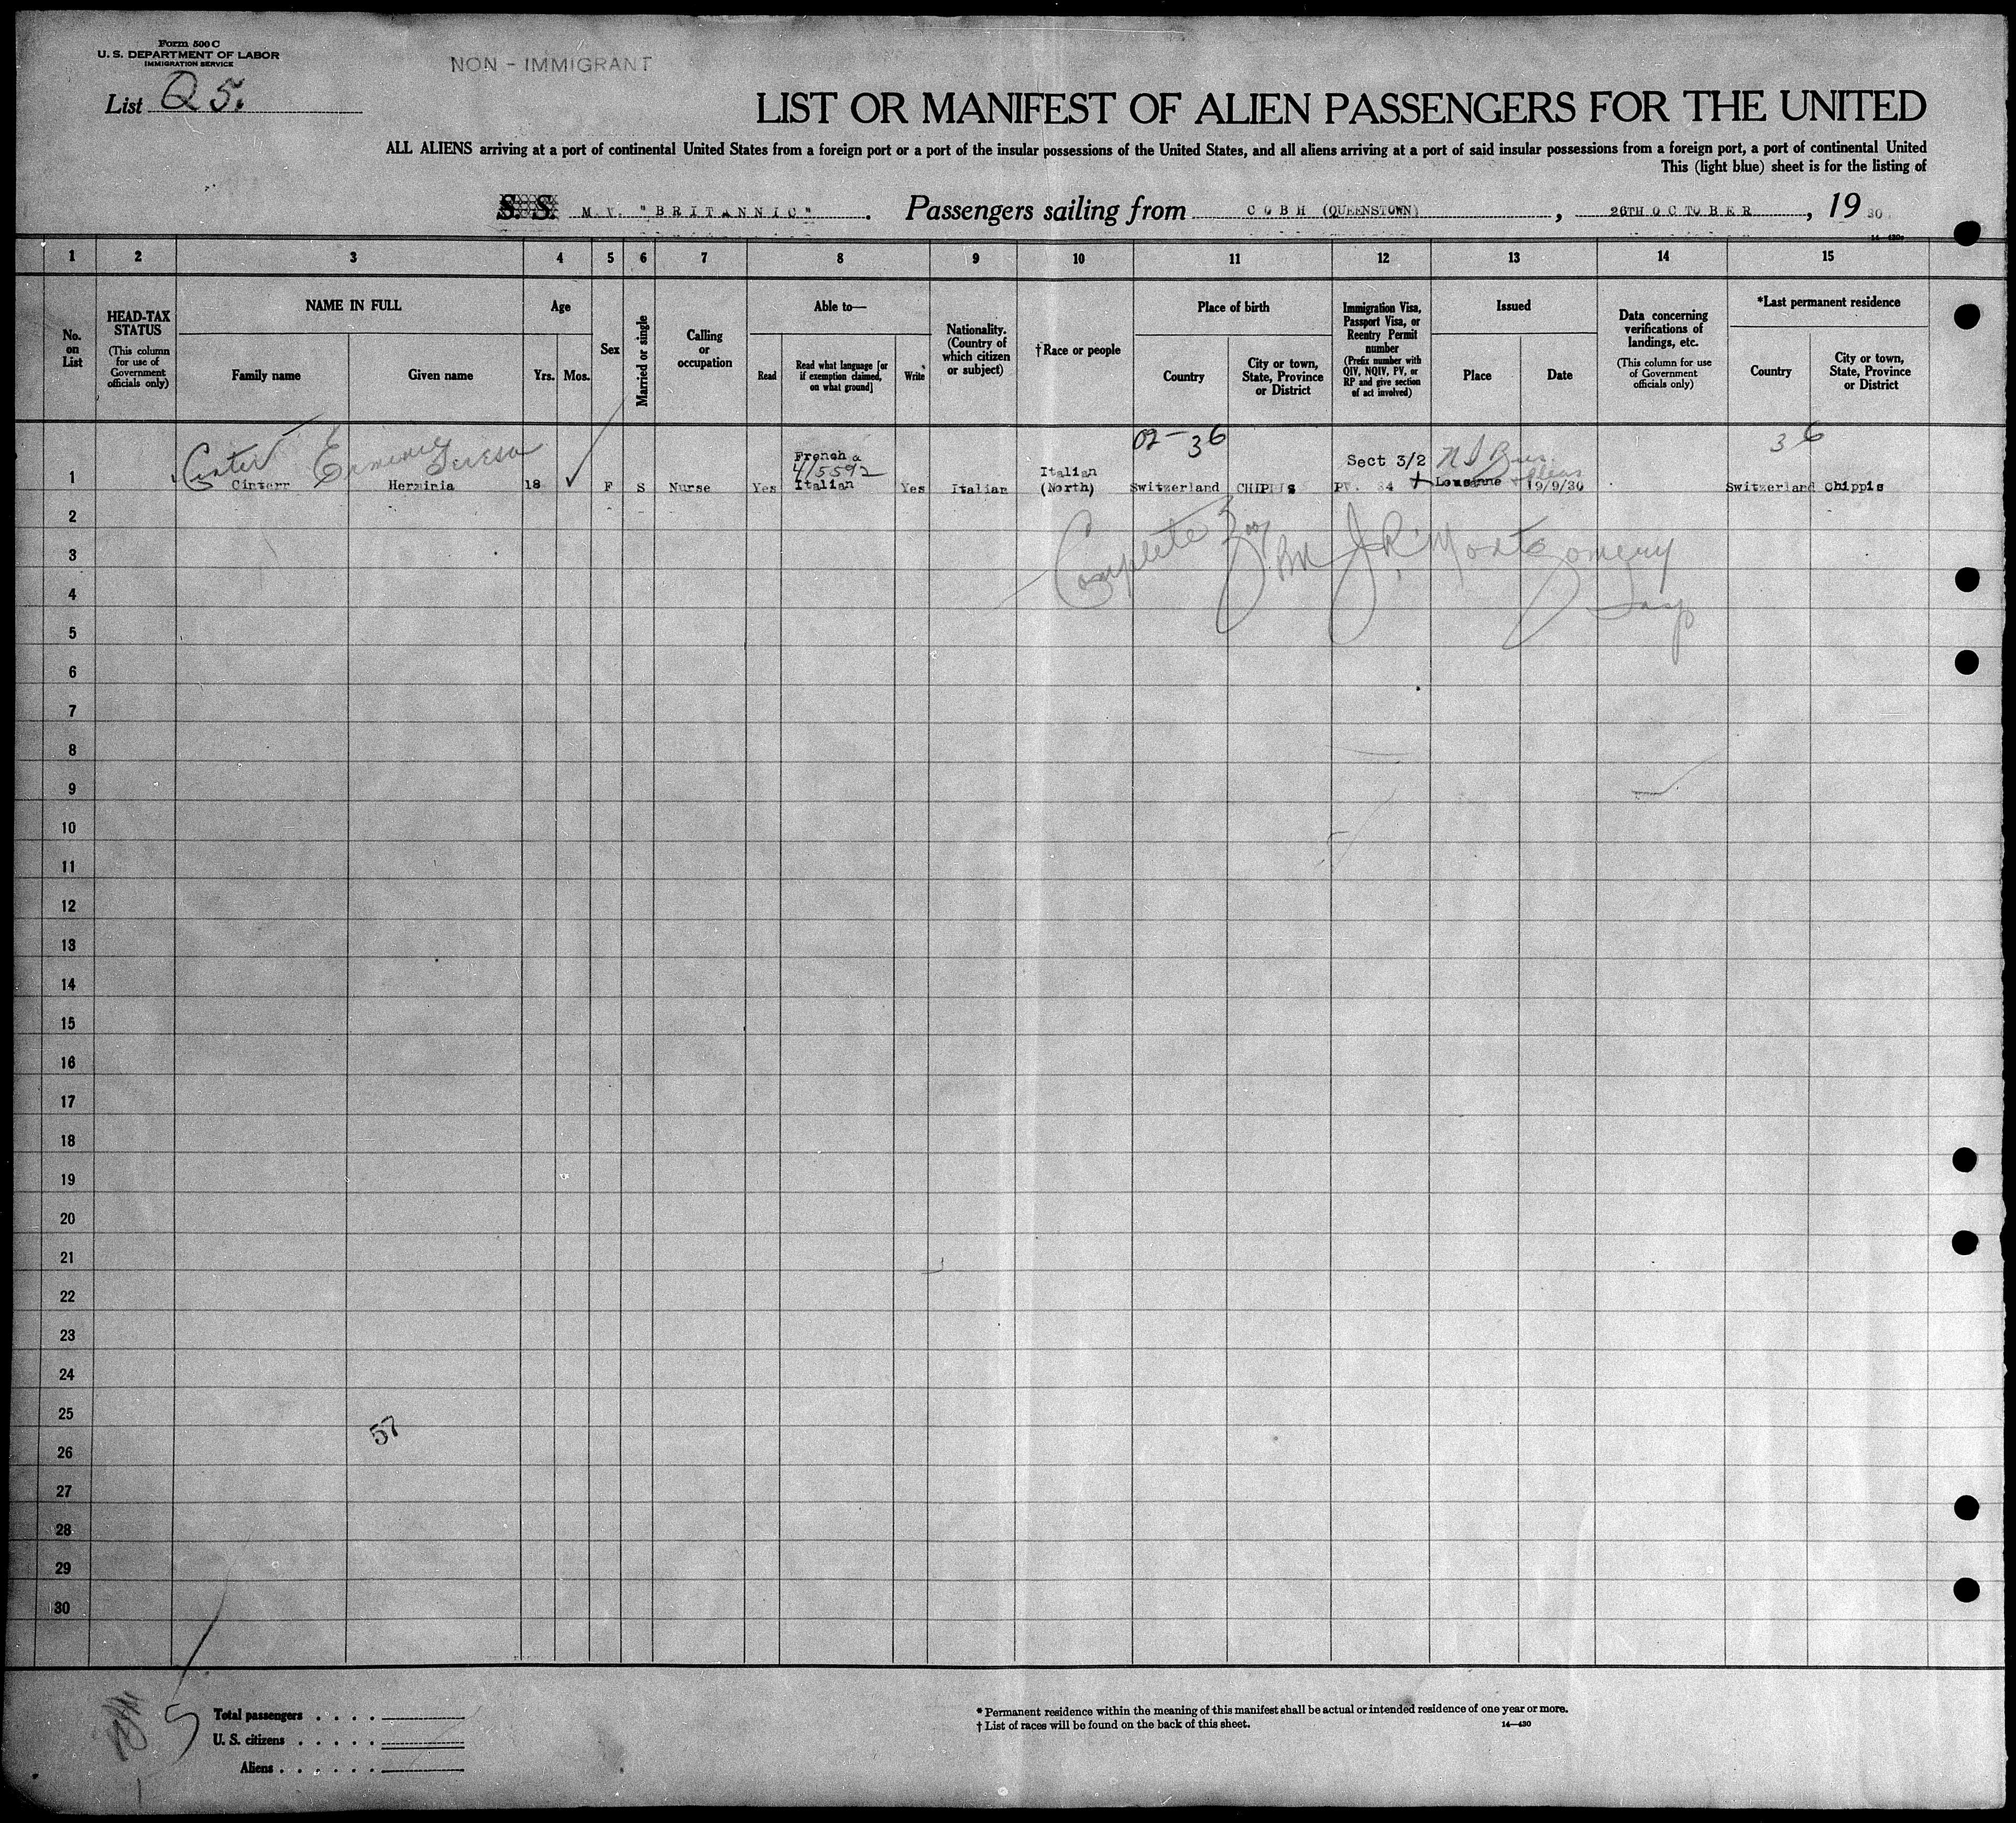 Form 500 C
U. S. DEPARTMENT OF LABOR
IMMIGRATION SERVICE
NON - IMMIGRANT
List Q 5.
LIST OR MANIFEST OF ALIEN PASSENGERS FOR THE UNITED
ALL ALIENS arriving at a port of continental United States from a foreign port or a port of the insular possessions of the United States, and all aliens arriving at a port of said insular possessions from a foreign port, a port of continental United
This (light blue) sheet is for the listing of
S. S. M.V. "BRITANNIC". Passengers sailing from COBH (QUEENSTOWN), 26TH OCTOBER, 19 30
1 2 3 4 5 6 7 8 9 10 11 12 13 14 15
No. on List
HEAD-TAX STATUS
(This column for use of Government officials only)
NAME IN FULL
Family name
Given name
Age
Yrs. Mos.
Sex
Married or single
Calling or occupation
Able to—
Read
Read what language [or if exemption claimed, on what ground]
Write
Nationality. (Country of which citizen or subject)
†Race or people
Place of birth
Country
City or town, State, Province or District
Immigration Visa, Passport Visa, or Reentry Permit number
(Prefix number with QIV, NQIV, PV, or RP and give section of act involved)
Issued
Place
Date
Data concerning verifications of landings, etc.
(This column for use of Government officials only)
*Last permanent residence
Country
City or town, State, Province or District
02-36
36
Teresa
French &
4/5592
Italian
(North)
Sect 3/2
1 Cinterr Herminia 18 F S Nurse Yes Italian Yes Italian Switzerland CHIPPIS PV. 84 Lousanne 19/9/30 Switzerland Chippis
Complete J. R. Montgomery
Insp
2
3
4
5
6
7
8
9
10
11
12
13
14
15
16
17
18
19
20
21
22
23
24
25
57
26
27
28
29
30
5
Total passengers . . . .
U. S. citizens . . . . .
Aliens . . . . . .
* Permanent residence within the meaning of this manifest shall be actual or intended residence of one year or more.
† List of races will be found on the back of this sheet.
14—430